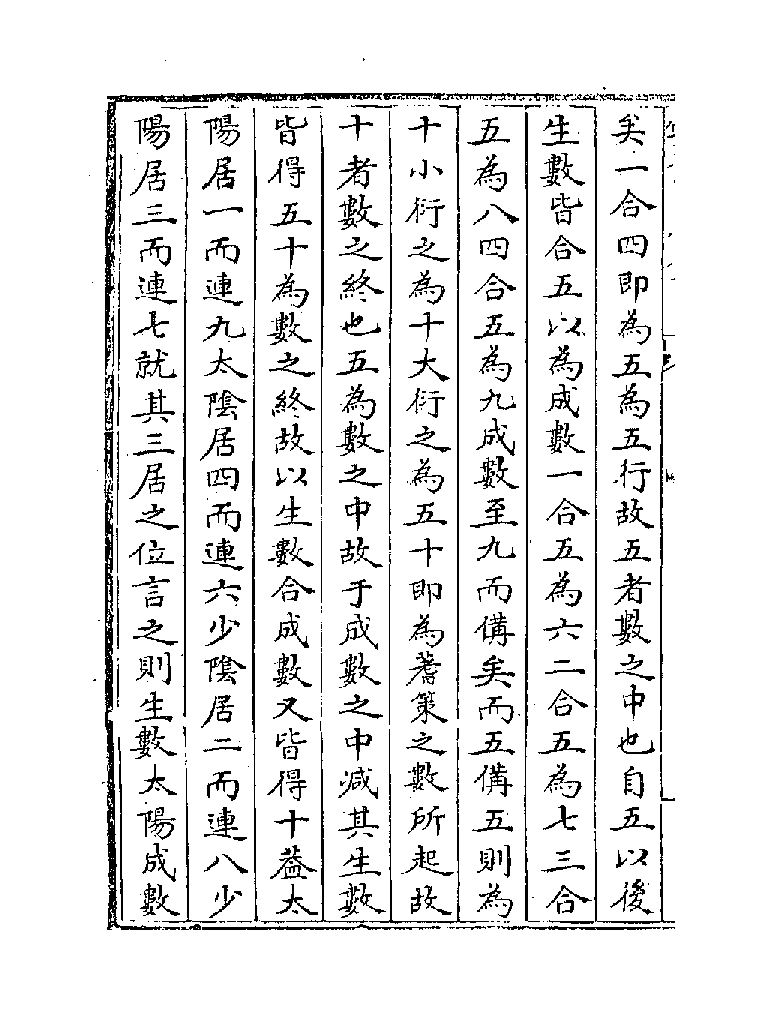 矣一合四即為五為五行故五者數之中也自五以後
生數皆合五以為成數一合五為六二合五為七三合
五為八四合五為九成數至九而備矣而五備五則為
十小衍之為十大衍之為五十即為蓍策之數所起故
十者數之終也五為數之中故于成數之中減其生數
皆得五十為數之終故以生數合成數又皆得十葢太
陽居一而連九太陰居四而連六少陰居二而連八少
陽居三而連七就其三居之位言之則生數太陽成數